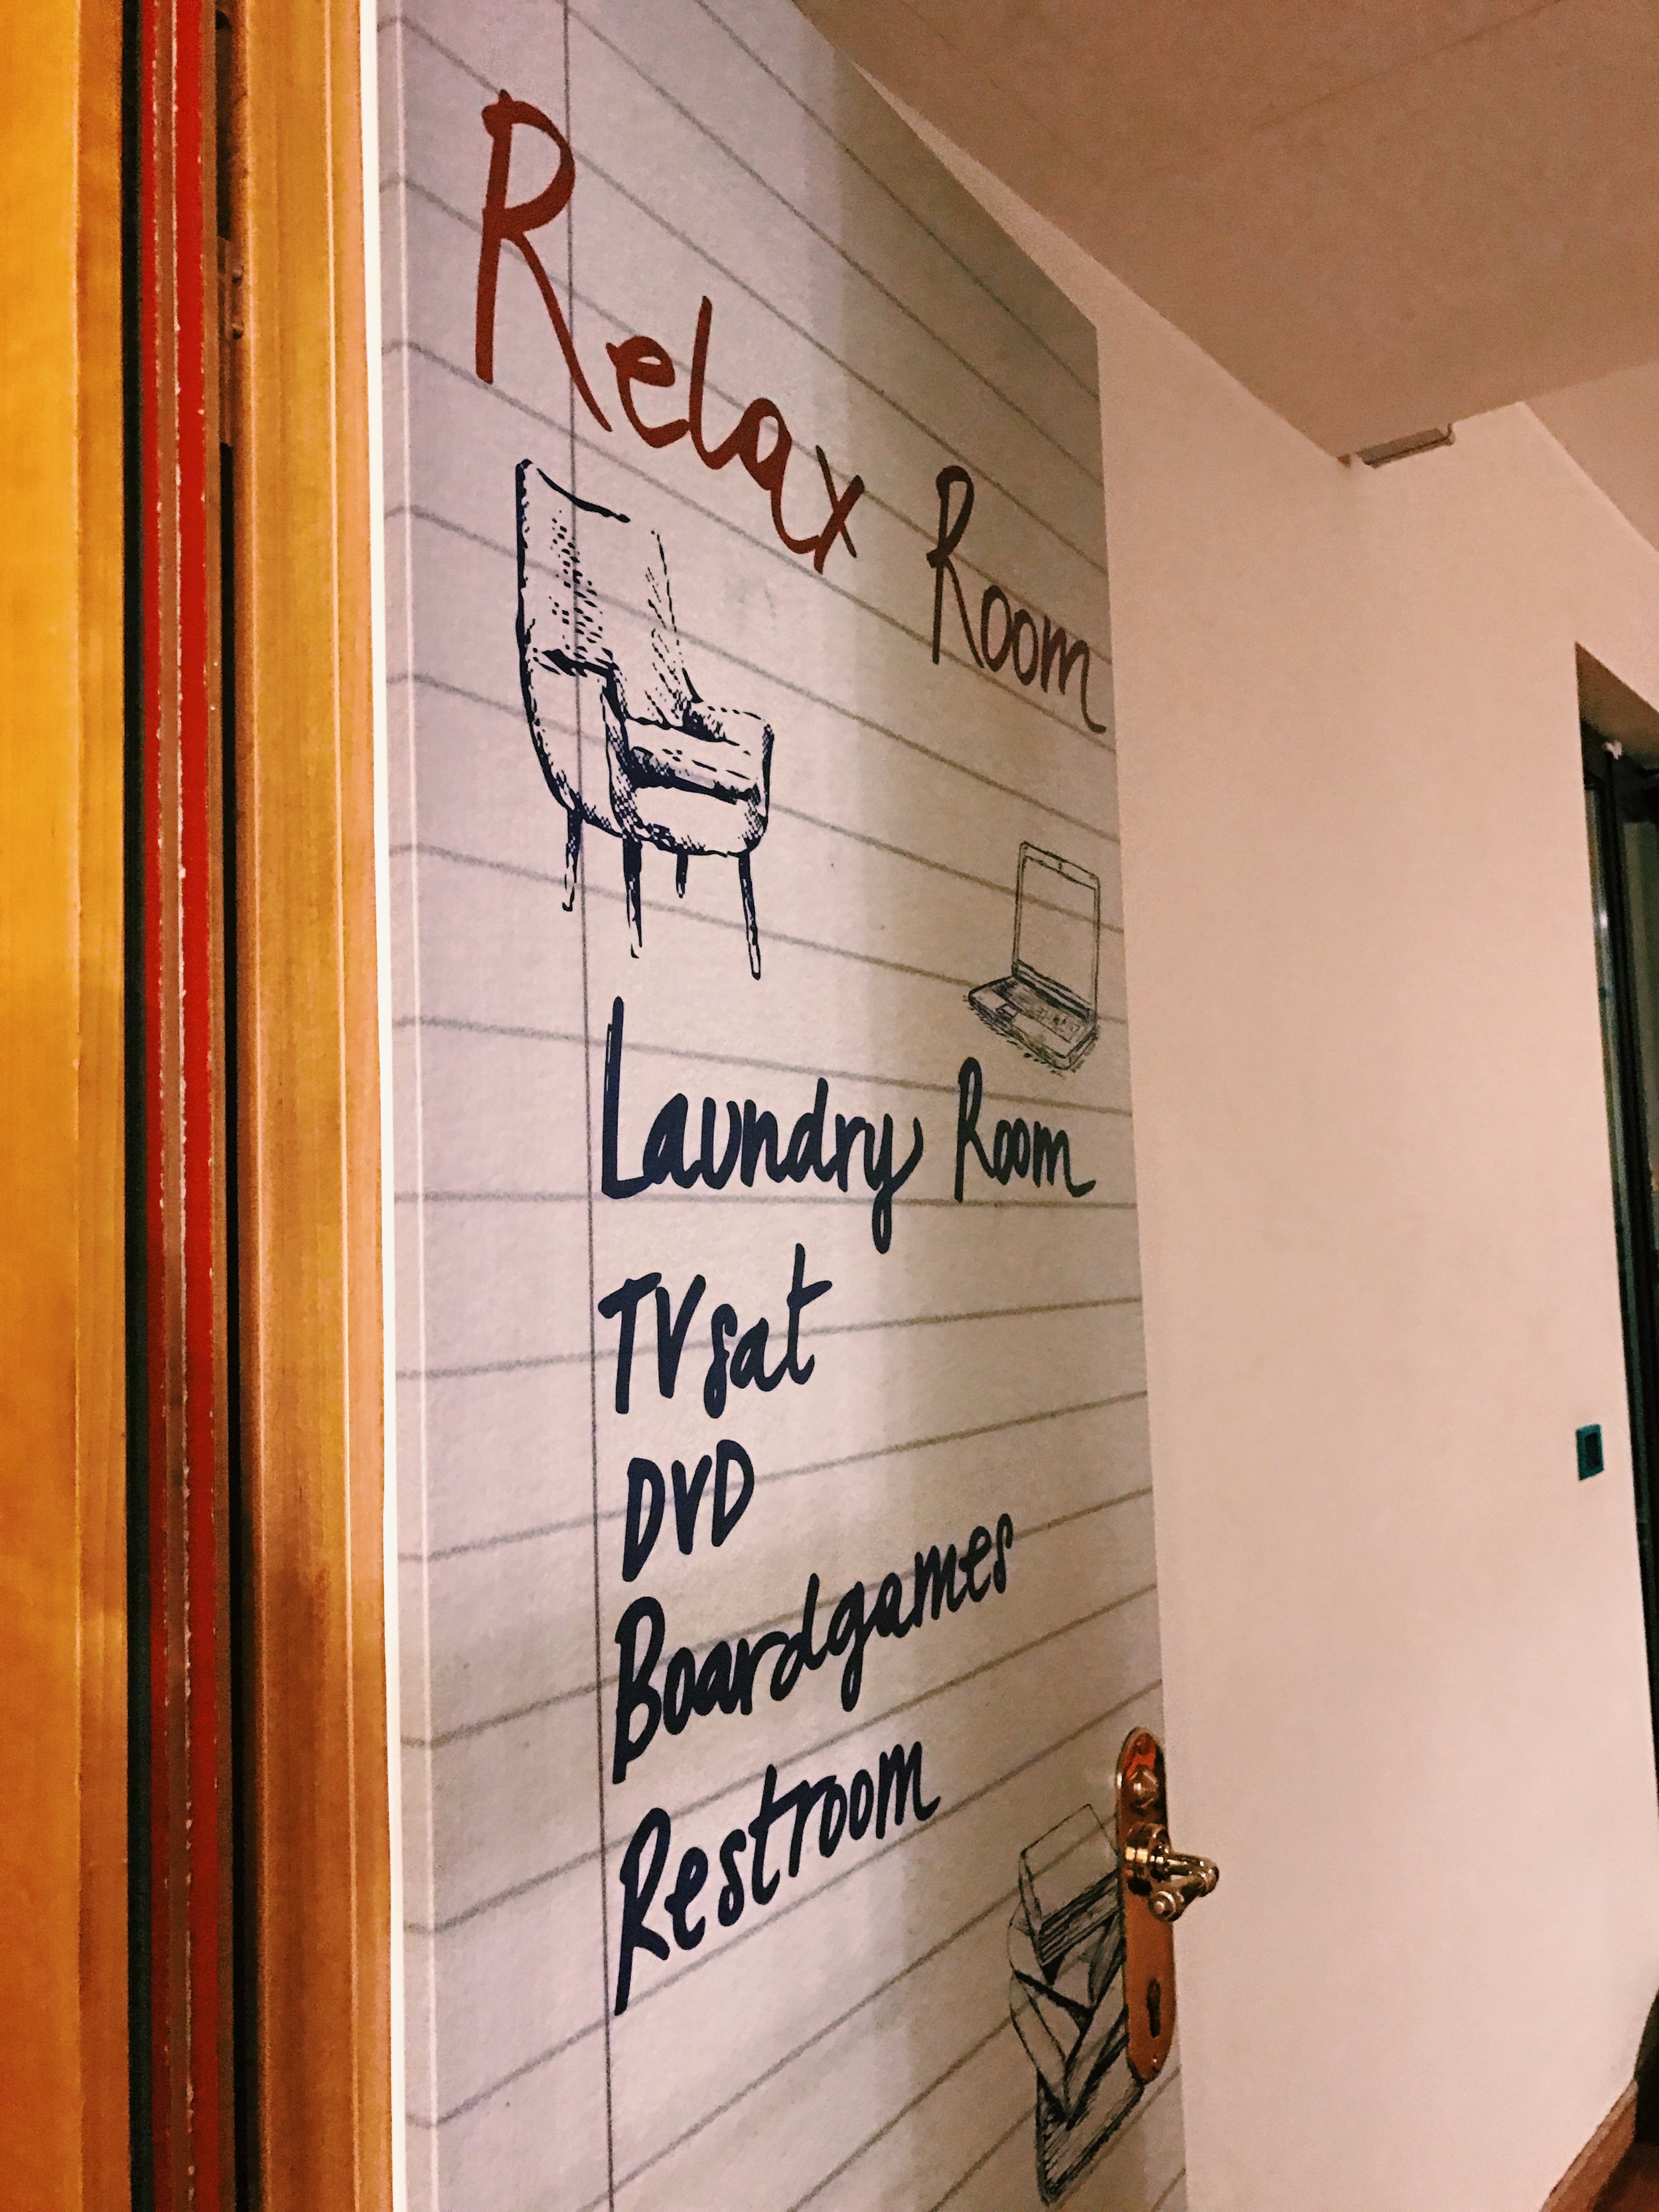 Relax Room
Laundry Room
TV sat
DVD
Boardgames
Restroom